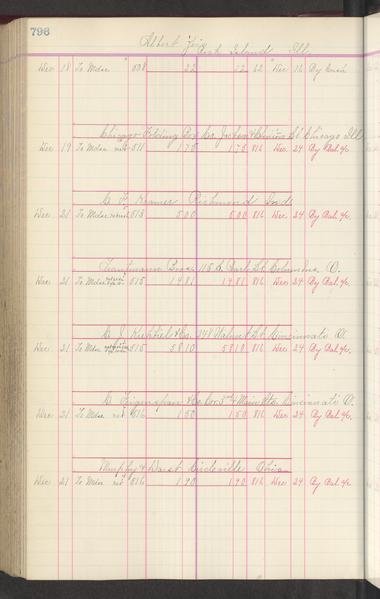 796
Albert
Rock Island Ill
Dec 18 To Mdse 508 22 22 62 Dec 16 By Cash
Chicago Folding Box Co. Jackson & Clinton St Chicago Ill
Dec 19 To Mdse ret 511 1.75 1.75 816 Dec 24 By Bal a/c
C. F. Kramer Richmond Ind
Dec 21 To Mdse 513 5.00 5.00 816 Dec 24 By Bal a/c
Trautmann Bros 115 St Columbus O.
Dec 21 To Mdse 515 14.81 14.81 816 Dec 24 By Bal a/c
C. J. & Co. 148 Walnut St Cincinnati O
Dec 21 To Mdse 515 58.10 58.10 816 Dec 24 By Bal a/c
C. & Co Cor. 5th & Main Sts. Cincinnati O.
Dec 21 To Mdse ret 516 1.50 1.50 816 Dec 24 By Bal a/c
Murphy & Circleville Ohio
Dec 21 To Mdse ret 516 1.90 1.90 816 Dec 24 By Bal a/c